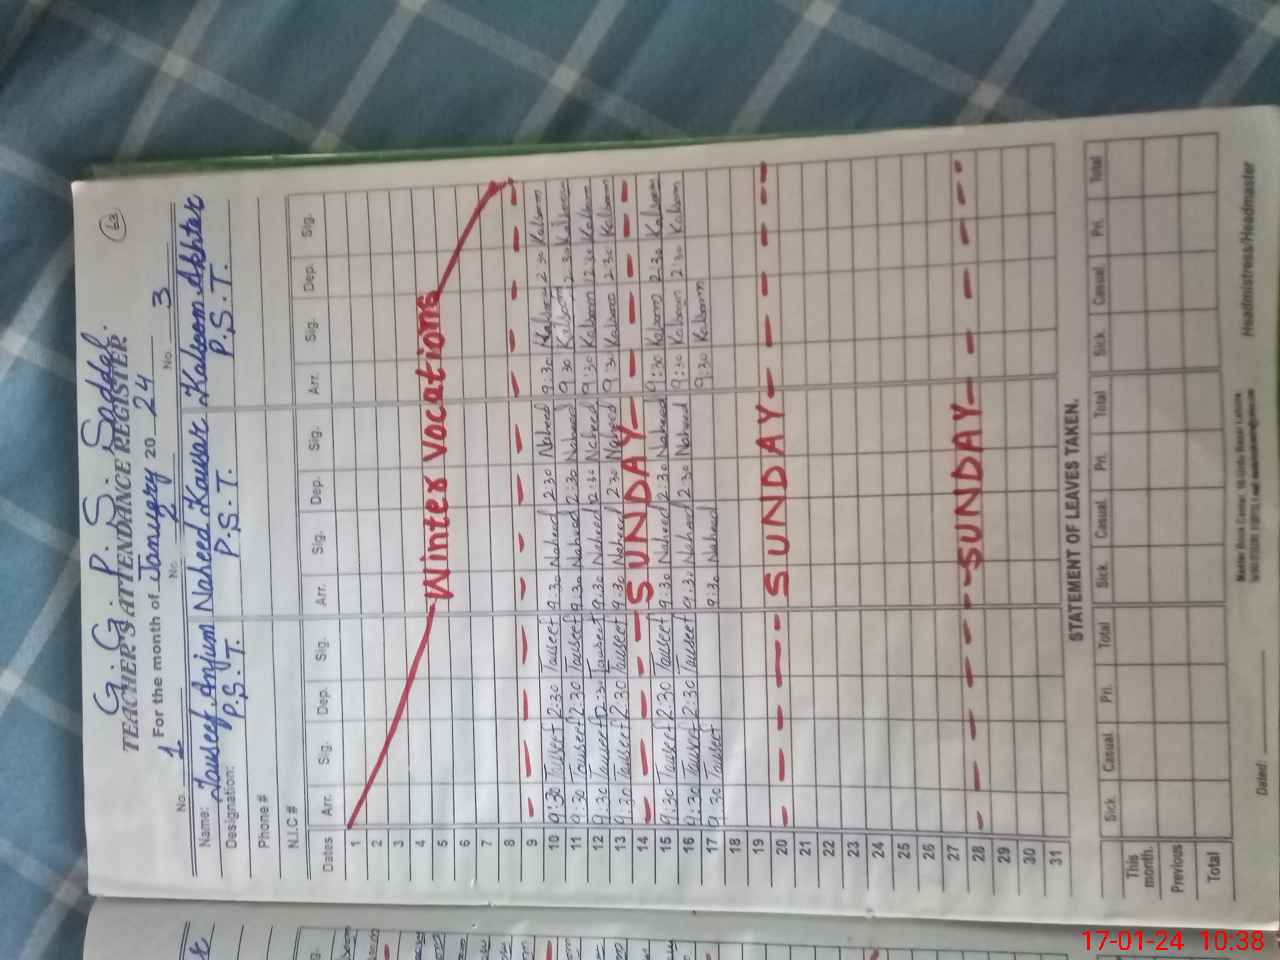 62
G. G. P. S. Saddal.
TEACHER'S ATTENDANCE REGISTER.
For the month of Janugry 20 24
No. 1 No. 2 No. 3
Name: Tauseef Anjum Naheed Kausar Kalsoom Akhter
Designation: P.S.T. P.S.T. P.S.T.
Phone #
N.I.C #
Dates Arr. Sig. Dep. Sig. Arr. Sig. Dep. Sig. Arr. Sig. Dep. Sig.
1
2
3
4 Winter Vocations
5
6
7
8
9
10 9:30 Tauseef 2:30 Tauseef 9:30 Naheed 2:30 Naheed 9:30 Kalsoom 2:30 Kalsoom
11 9:30 Tauseef 2:30 Tauseef 9:30 Naheed 2:30 Naheed 9:30 Kalsoom 2:30 Kalsoom
12 9:30 Tauseef 12:30 Tauseef 9:30 Naheed 12:30 Naheed 9:30 Kalsoom 12:30 Kalsoom
13 9:30 Tauseef 2:30 Tauseef 9:30 Naheed 2:30 Naheed 9:30 Kalsoom 2:30 Kalsoom
14 SUNDAY
15 9:30 Tauseef 2:30 Tauseef 9:30 Naheed 2:30 Naheed 9:30 Kalsoom 2:30 Kalsoom
16 9:30 Tauseef 2:30 Tauseef 9:30 Naheed 2:30 Naheed 9:30 Kalsoom 2:30 Kalsoom
17 9:30 Tauseef 9:30 Naheed 9:30 Kalsoom
18
19
20 SUNDAY
21
22
23
24
25
26
27
28 SUNDAY
29
30
31
STATEMENT OF LEAVES TAKEN.
Sick. Casual Pri. Total Sick. Casual. Pri. Total Sick. Casual Pri. Total
This month.
Previous
Total
Dated: Headmistress/Headmaster
17-01-24 10:38